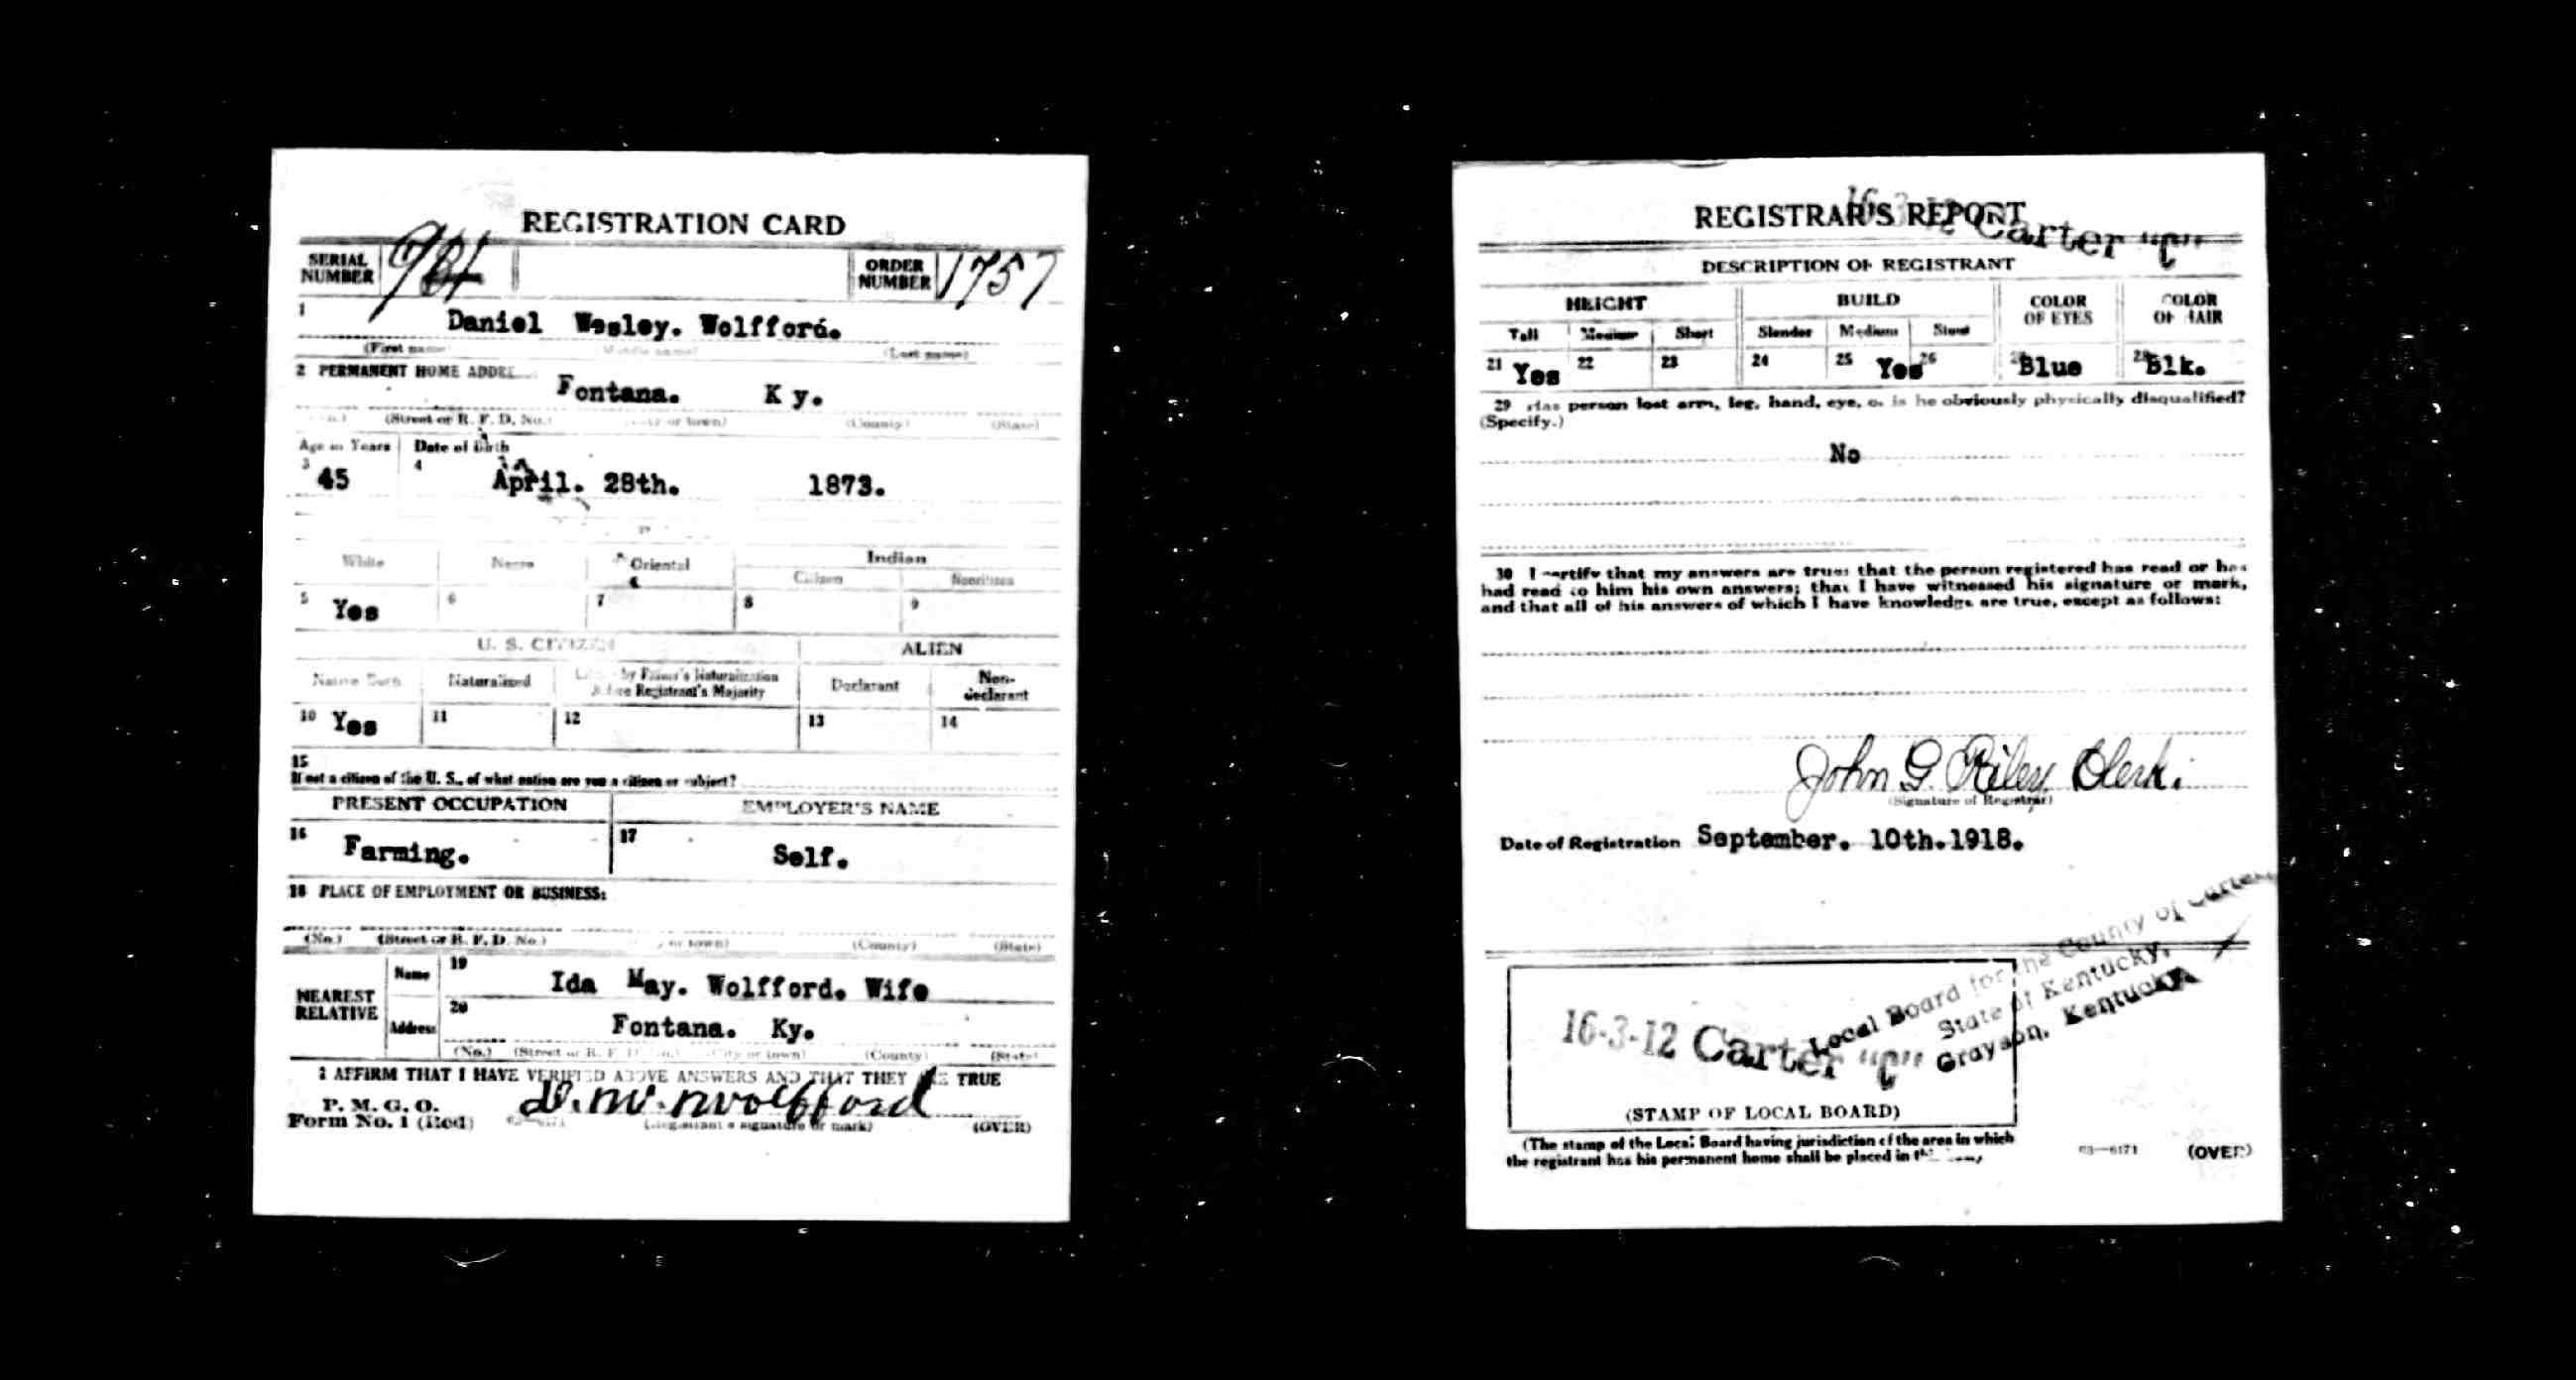 REGISTRATION CARD
SERIAL NUMBER
ORDER NUMBER 1757
1 Daniel Wesley. Wolfford.
(First name) (Middle name) (Last name)
2 PERMANENT HOME
Fontana. Ky.
(Street or R. F. D. No.) (County) (State)
Age in Years Date of Birth
3 45 4 April. 28th. 1873.
White Negro Oriental Indian
Citizen Noncitizen
5 Yes 6 7 8 9
U. S. CITIZEN ALIEN
Native Born Naturalized by Father's Naturalization Registrant's Majority Declarant Non-declarant
10 Yes 11 12 13 14
15
If not a citizen of the U. S., of what nation are you a citizen or subject?
PRESENT OCCUPATION EMPLOYER'S NAME
16 Farming. 17 Self.
18 PLACE OF EMPLOYMENT OR BUSINESS:
(No.) (Street or R. F. D. No.) (County) (State)
NEAREST RELATIVE
Name 19 Ida May. Wolfford. Wife
Address 20 Fontana. Ky.
(No.) (Street or R. F. D. No.) (City or town) (County) (State)
I AFFIRM THAT I HAVE VERIFIED ABOVE ANSWERS AND THAT THEY ARE TRUE
P. M. G. O.
Form No. 1 (Red) D. W. Wolfford
(Registrant's signature or mark) (OVER)
REGISTRAR'S REPORT
16-3-12 Carter "C"
DESCRIPTION OF REGISTRANT
HEIGHT BUILD COLOR OF EYES COLOR OF HAIR
Tall Medium Short Slender Medium Stout
21 Yes 22 23 24 25 Yes 26 Blue Blk.
29 Has person lost arm, leg, hand, eye, or is he obviously physically disqualified?
(Specify.)
No
30 I certify that my answers are true; that the person registered has read or has
had read to him his own answers; that I have witnessed his signature or mark,
and that all of his answers of which I have knowledge are true, except as follows:
John G. Riley Clerk.
(Signature of Registrar)
Date of Registration September. 10th. 1918.
Local Board for the County of Carter,
State of Kentucky,
Grayson, Kentucky
16-3-12 Carter "C"
(STAMP OF LOCAL BOARD)
(The stamp of the Local Board having jurisdiction of the area in which
the registrant has his permanent home shall be placed in
03—6171 (OVER)